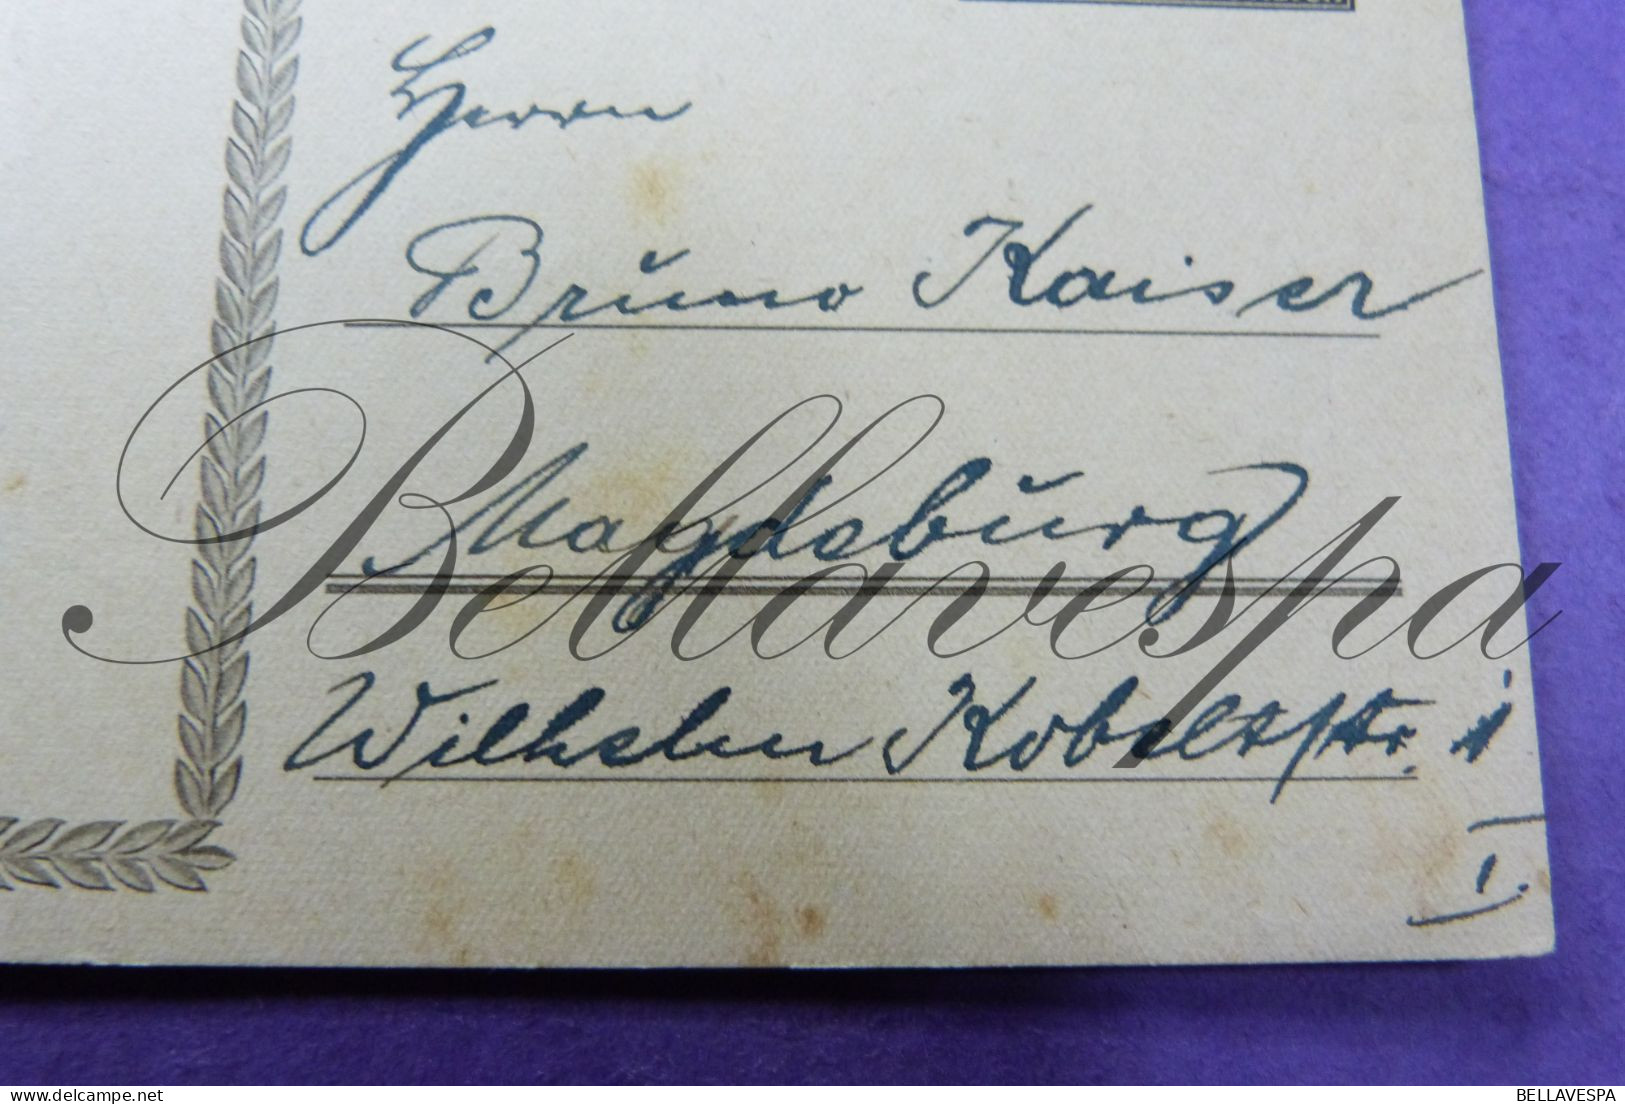 Herrn
Bruno Kaiser
Magdeburg
Wilhelm Kobeltstr. 1
I.
Bellavespa
delcampe.net
BELLAVESPA